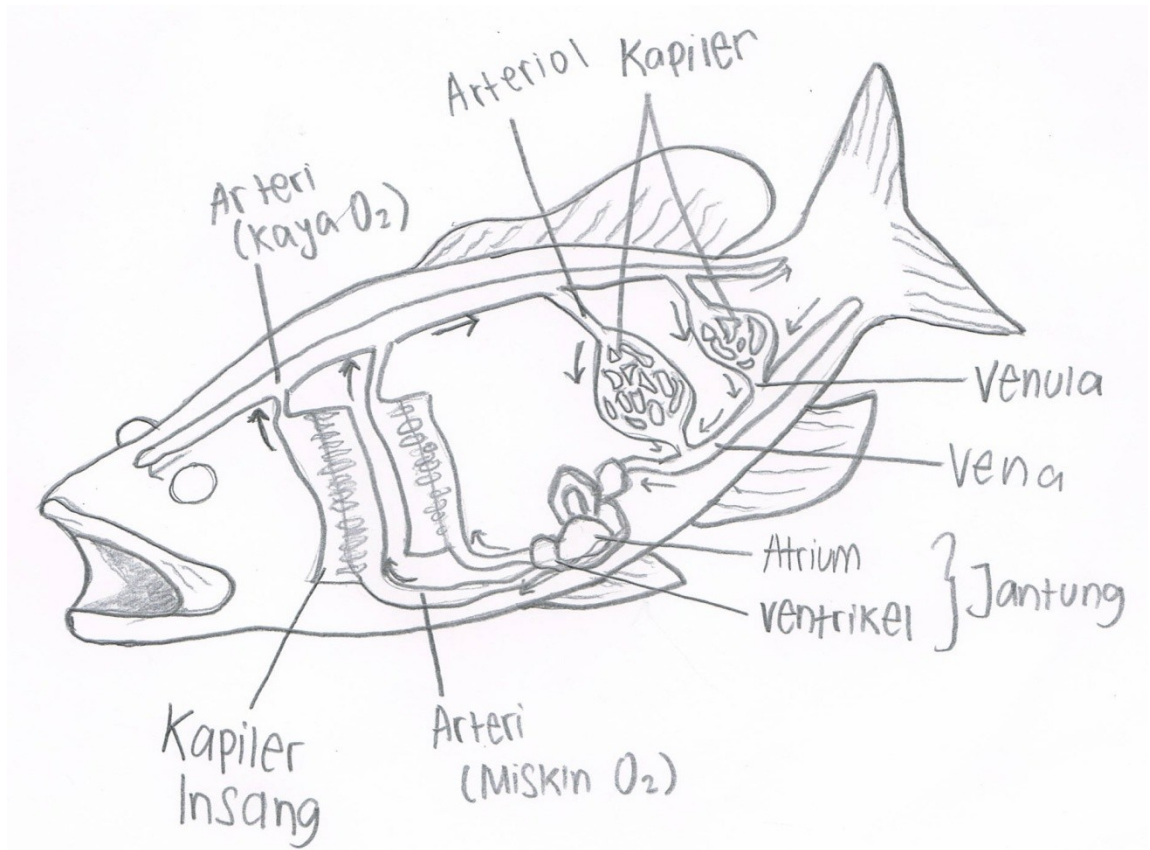 Arteriol Kapiler
Arteri
(Kaya O₂)
Venula
Vena
Atrium
Ventrikel
Jantung
Kapiler
Insang
Arteri
(Miskin O₂)